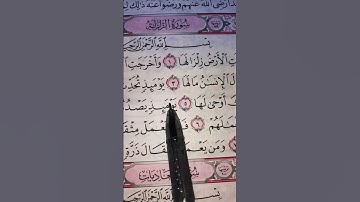 رضى الله عنهم ورضوا عنه ذلك
سورة الزلزلة
بسم الله الرحمن الرحيم
ت الأرض زلزالها ١ وأخرجت
ل الإنسن مالها ٣ يومئذ تحدث
أوحى لها ٥ يومئذ يصد
عملهم ٦ فمن يعمل مثقا
ومن يعمل مثقال ذرة
عاديات
بسم الله الرحمن الرحيم